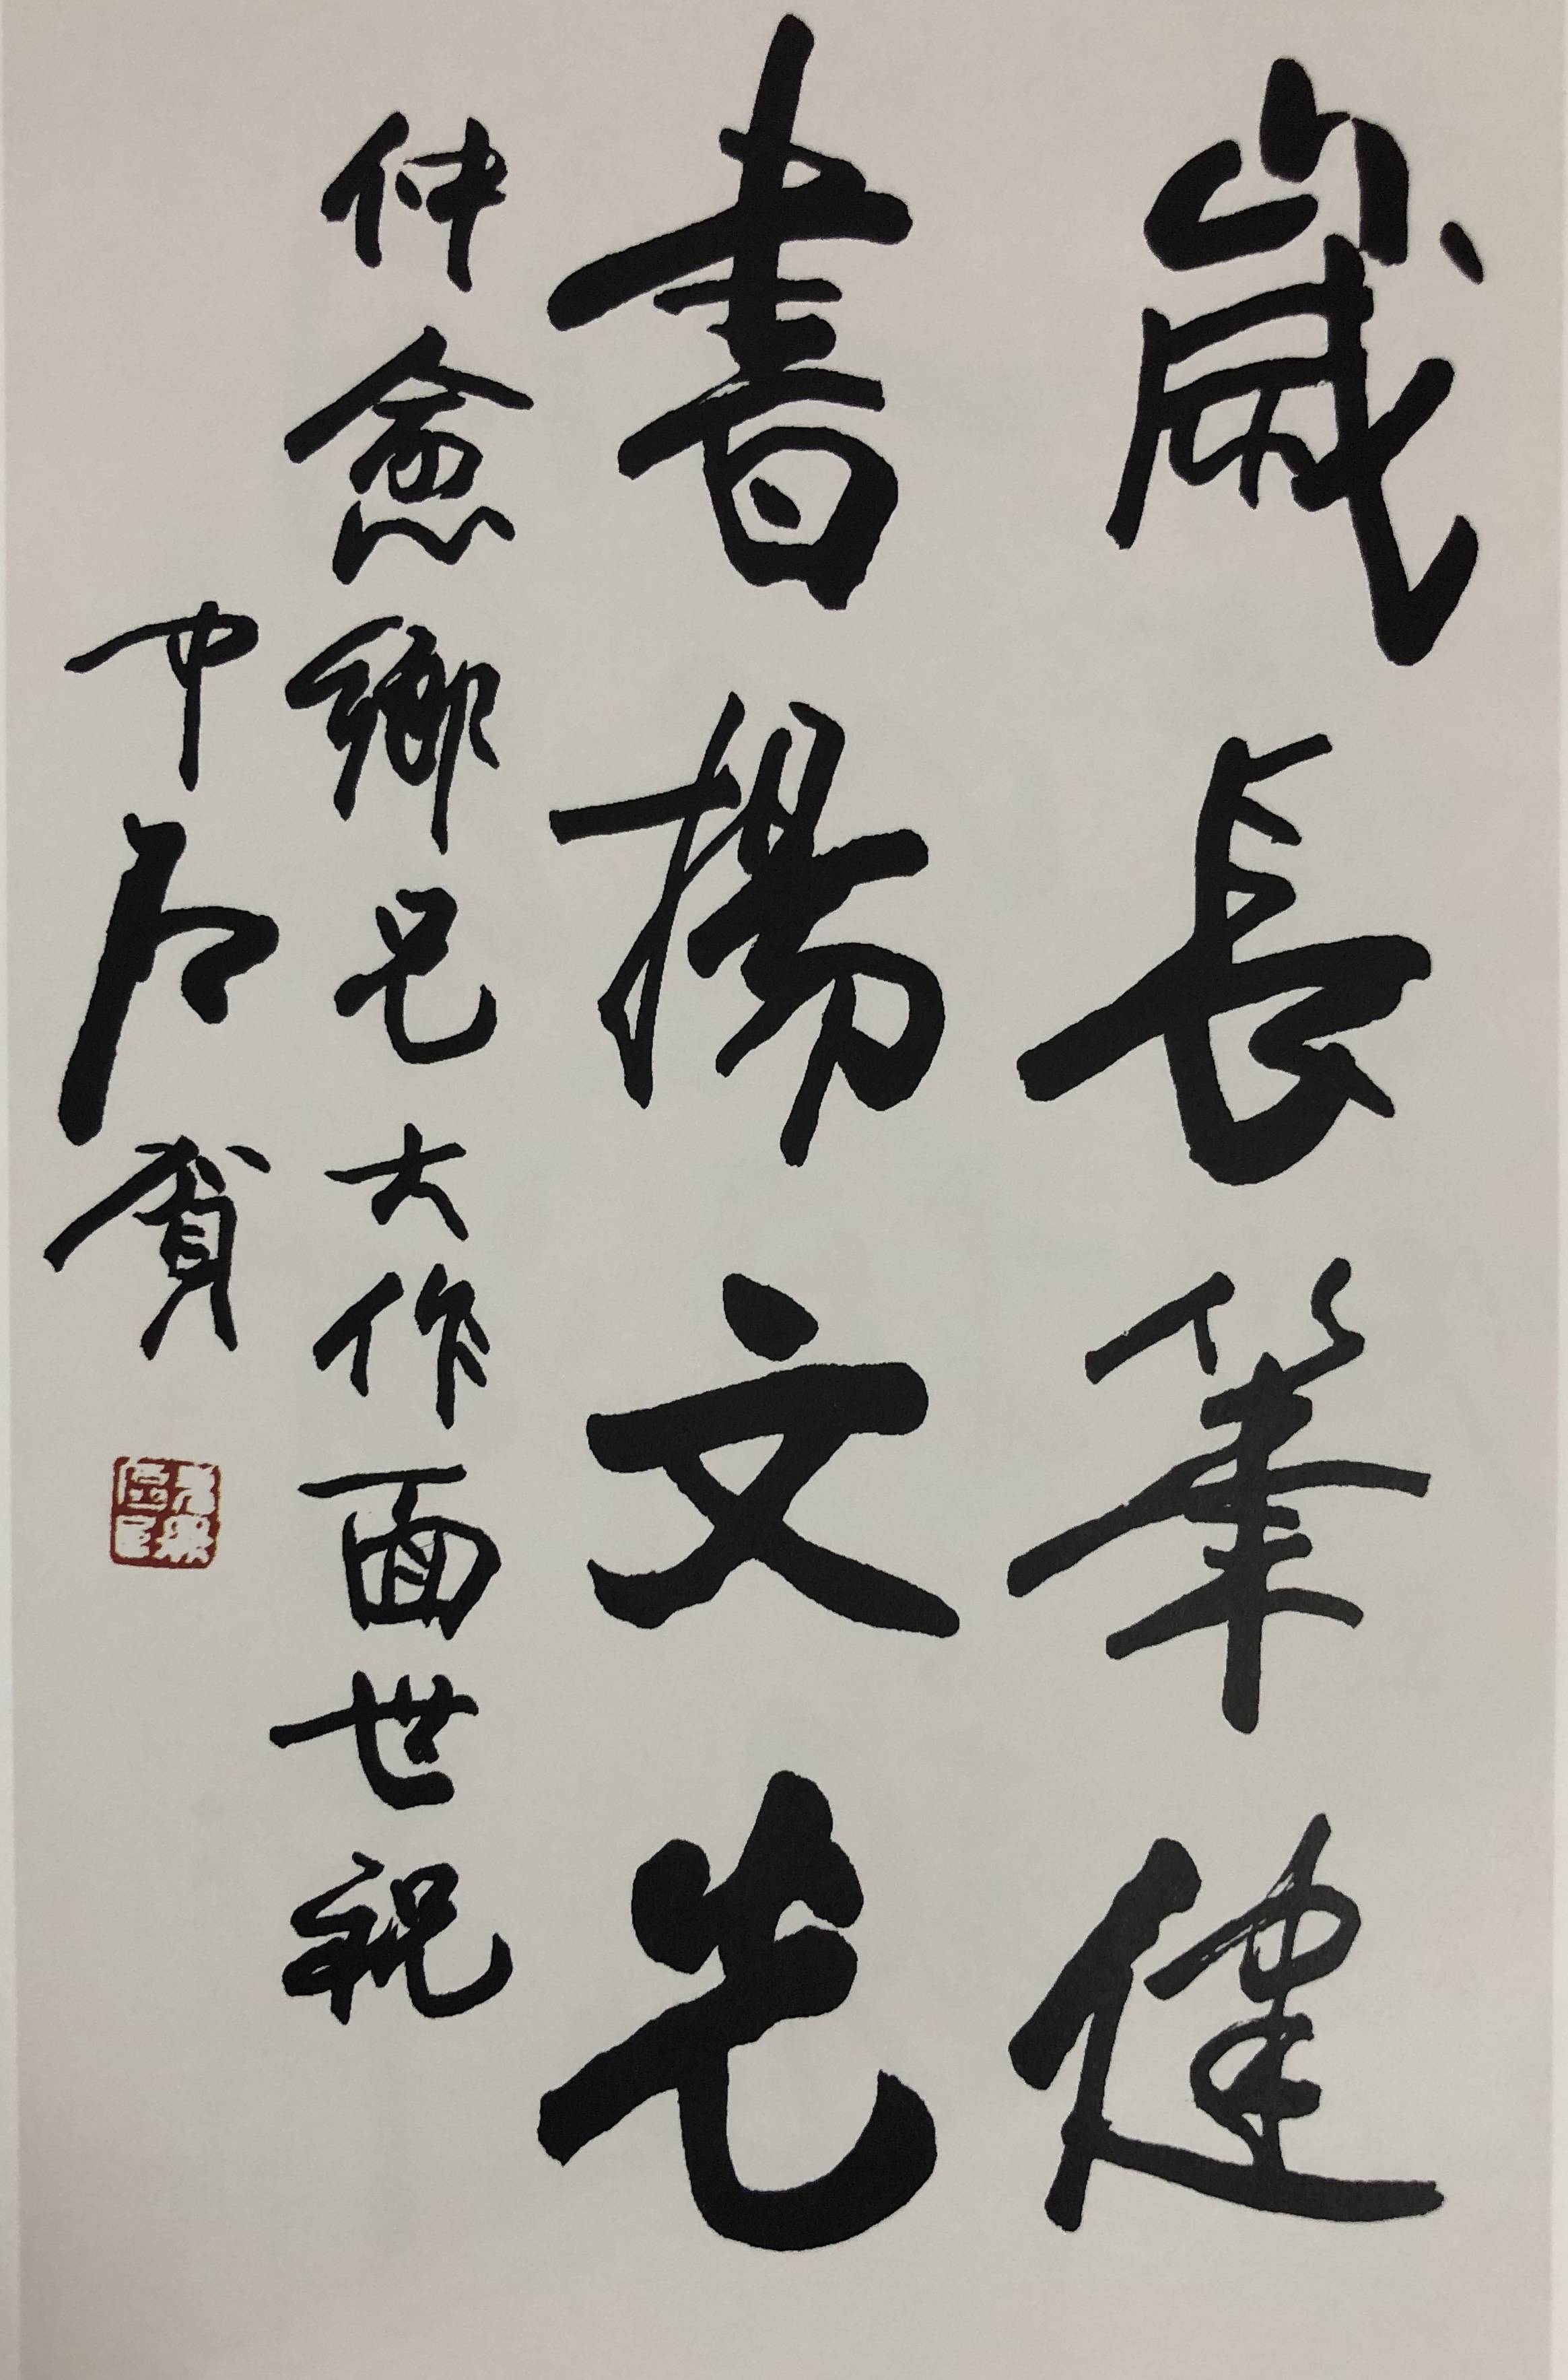 歲長筆健
書揚文光
仲愈鄉兄大作面世祝
中石賀